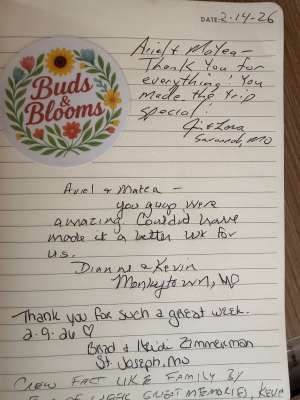 DATE: 2-14-26
Buds
&
Blooms
Ariel & Matea -
Thank you for
everything! You
made the trip
special!
& Lora
Savannah, MO
Ariel & Matea -
you guys were
amazing. Couldn't have
made it a better wk for
us.
Dianne & Kevin
Thank you for such a great week.
2-9-26 ♡
Brad & Heidi Zimmerman
St Joseph, MO
CREW FELT LIKE FAMILY BY
OF WEEK GREAT MEMORIES,